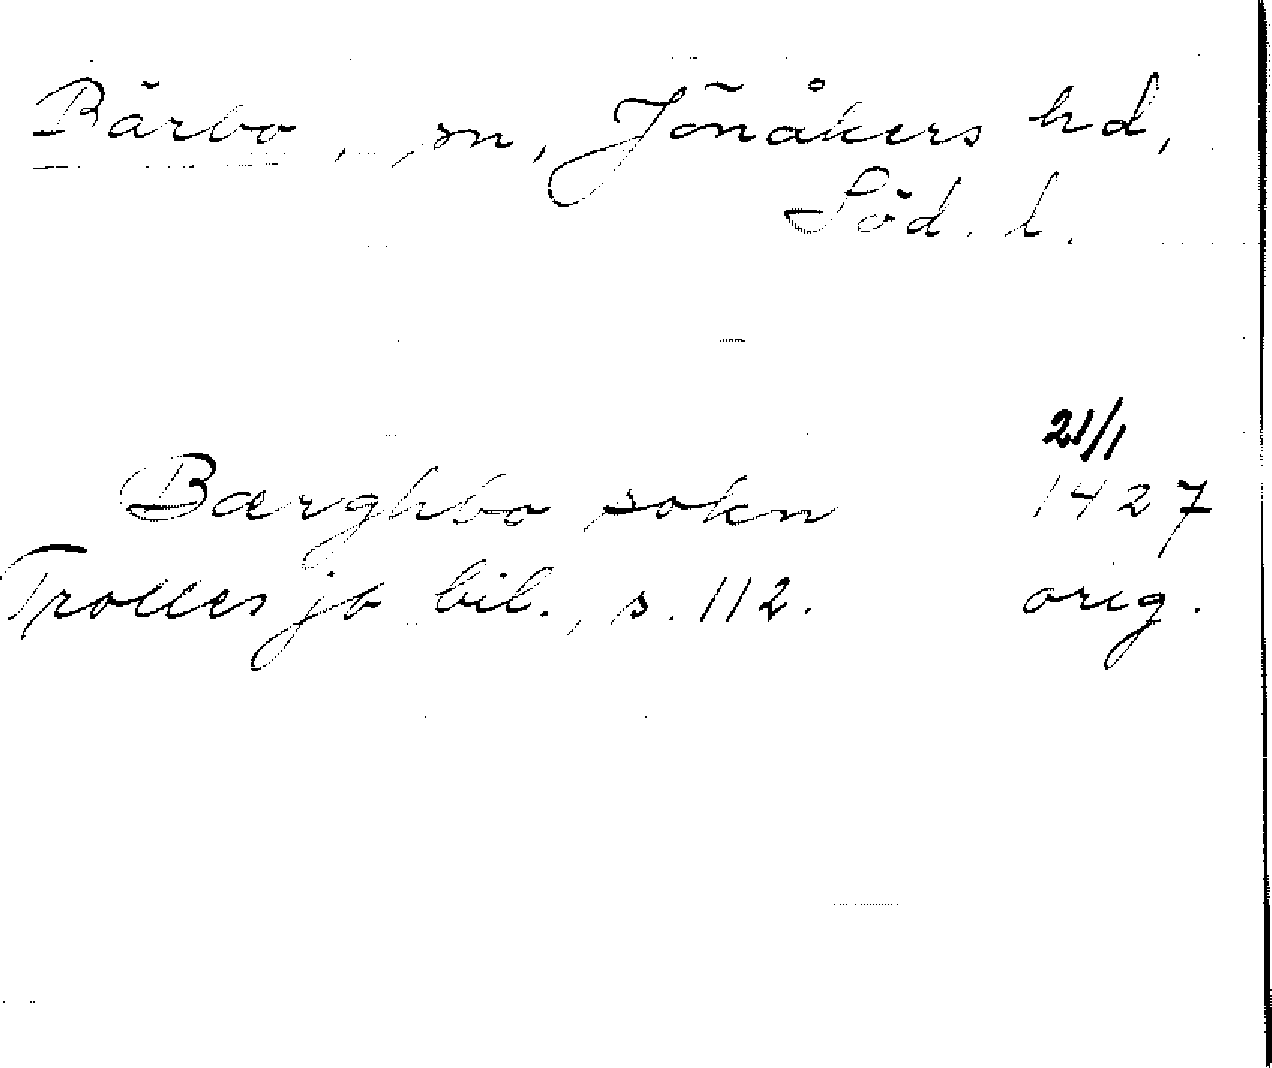 Bärbo, sn, Jönåkers hd,
Söd. l.
21/1
Bærghbo sokn 1427
Trolles jb bil., s. 112. orig.